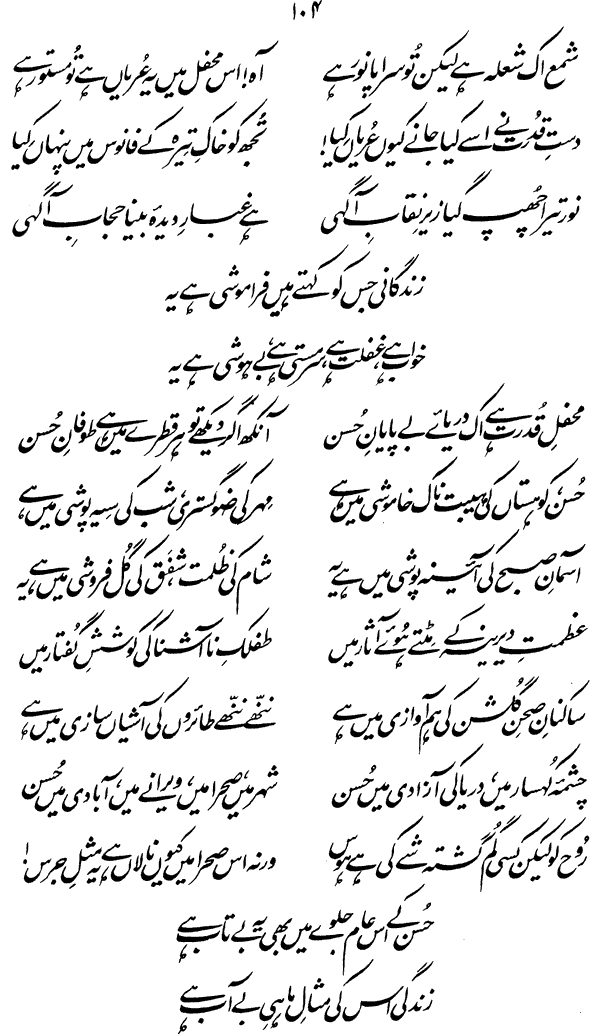 ۱۰۴
شمع اک شعلہ ہے لیکن تُو سراپا نور ہے آہ! اس محفل میں یہ عُریاں ہے تُو مستور ہے
دستِ قدرت نے اسے کیا جانے کیوں عُریاں کیا! تُجھ کو خاکِ تیرہ کے فانوس میں پنہاں کیا
نور تیرا چھُپ گیا زیرِ نقابِ آگہی ہے غبارِ دیدۂ بینا حجابِ آگہی
زندگانی جس کو کہتے ہیں فراموشی ہے یہ
خواب ہے، غفلت ہے، سرمستی ہے، بے ہوشی ہے یہ
محفلِ قُدرت ہے اک دریائے بے پایانِ حُسن آنکھ اگر دیکھے تو ہر قطرے میں ہے طوفانِ حُسن
حُسن، کوہستاں کی ہیبت ناک خاموشی میں ہے مِہر کی ضوگستری، شب کی سیہ پوشی میں ہے
آسمانِ صبح کی آئینہ پوشی میں ہے یہ شام کی ظُلمت، شفَق کی گُل فروشی میں ہے یہ
عظمتِ دیرینہ کے مِٹتے ہُوئے آثار میں طفلکِ ناآشنا کی کوششِ گُفتار میں
ساکنانِ صحنِ گُلشن کی ہم آوازی میں ہے ننھّے ننھّے طائروں کی آشیاں سازی میں ہے
چشمۂ کُہسار میں، دریا کی آزادی میں حُسن شہر میں، صحرا میں، ویرانے میں، آبادی میں حُسن
رُوح کو لیکن کسی گُم گشتہ شے کی ہے ہوس ورنہ اس صحرا میں کیوں نالاں ہے یہ مثلِ جرس!
حُسن کے اس عام جلوے میں بھی یہ بے تاب ہے
زندگی اس کی مثالِ ماہیِ بے آب ہے